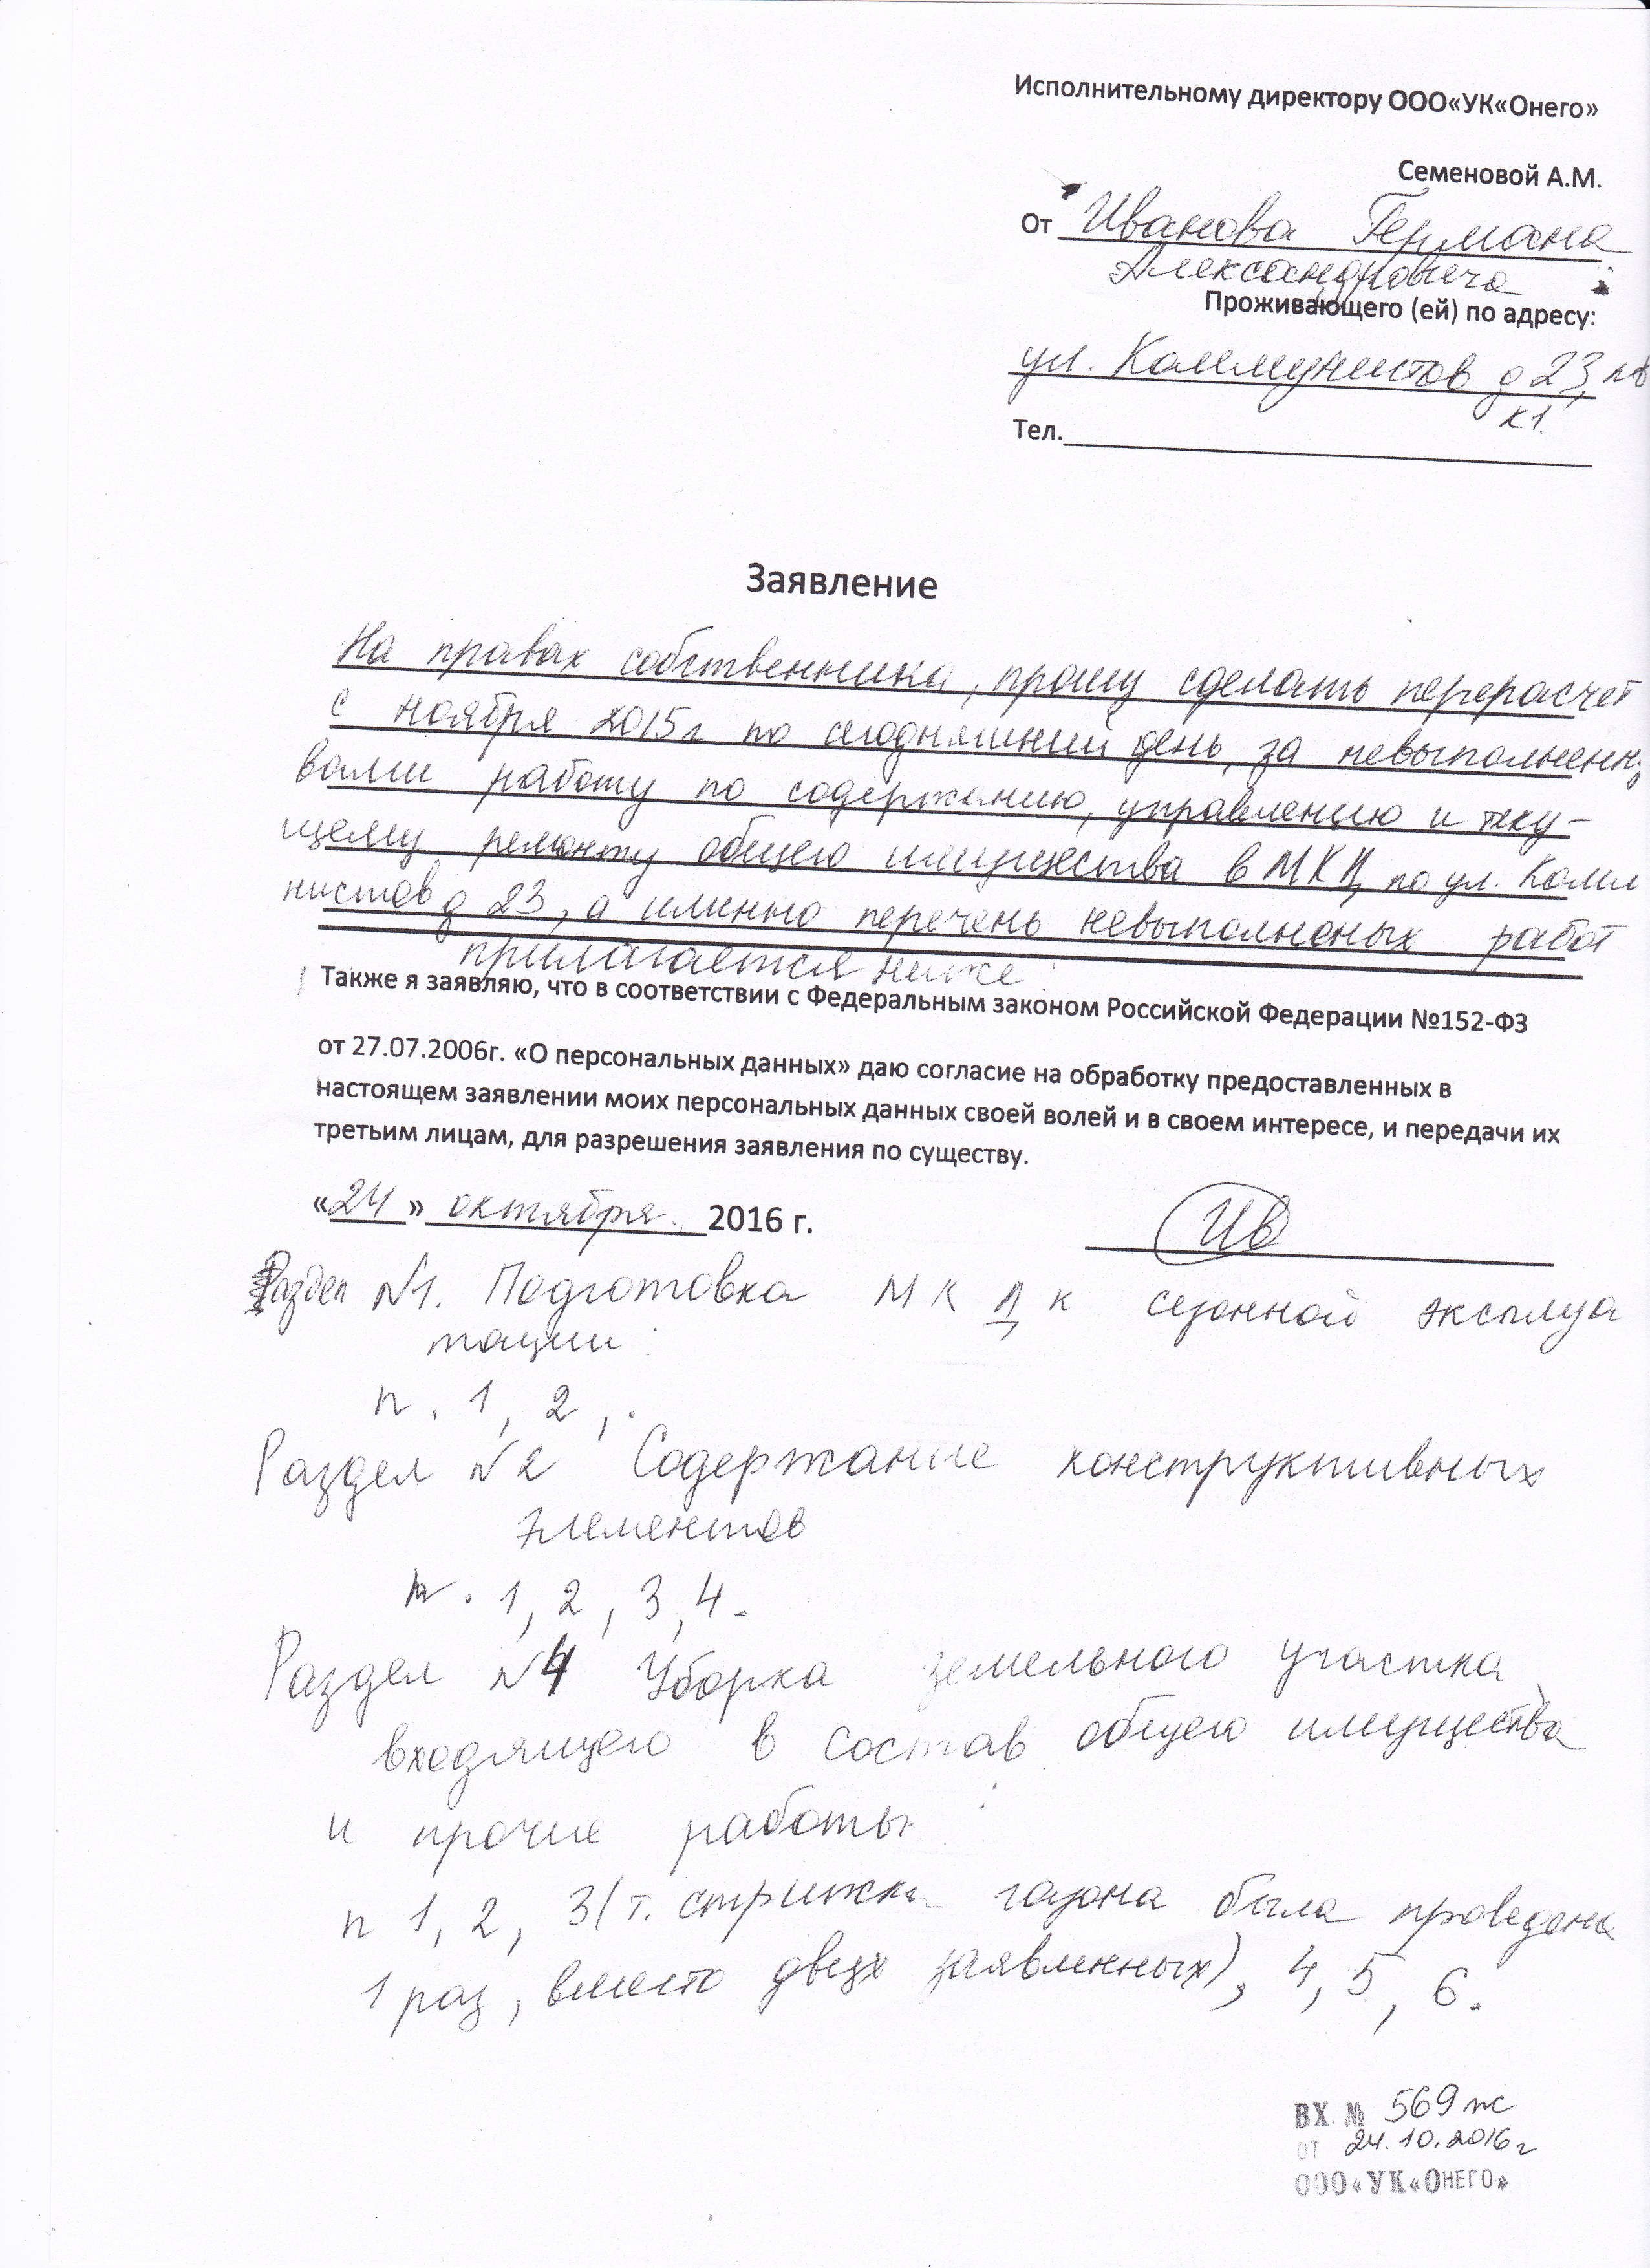 Исполнительному директору ООО«УК«Онего»
Семеновой А.М.
От Иванова Германа
Александровича
Проживающего (ей) по адресу:
ул. Коммунистов д 23, кв
к1.
Тел.
Заявление
На правах собственника, прошу сделать перерасчет
с ноября 2015г по сегодняшний день, за невыполненну
вами работу по содержанию, управлению и теку-
щему ремонту общего имущества в МКД по ул. Комм
нистов д 23, а именно перечень невыполненых работ
прилагается ниже:
Также я заявляю, что в соответствии с Федеральным законом Российской Федерации №152-ФЗ
от 27.07.2006г. «О персональных данных» даю согласие на обработку предоставленных в
настоящем заявлении моих персональных данных своей волей и в своем интересе, и передачи их
третьим лицам, для разрешения заявления по существу.
«24» октября 2016 г. Ив
Раздел №1. Подготовка МКД к сезонной эксплуа
тации:
п. 1, 2,.
Раздел №2 Содержание конструктивных
элементов
п. 1, 2, 3, 4.
Раздел №4 Уборка земельного участка,
входящего в состав общего имущества
и прочие работы:
п 1, 2, 3(т. стрижка газона была проведена
1 раз, вместо двух заявленных), 4, 5, 6.
ВХ № 569ж
от 24.10.2016г
ООО«УК«ОНЕГО»